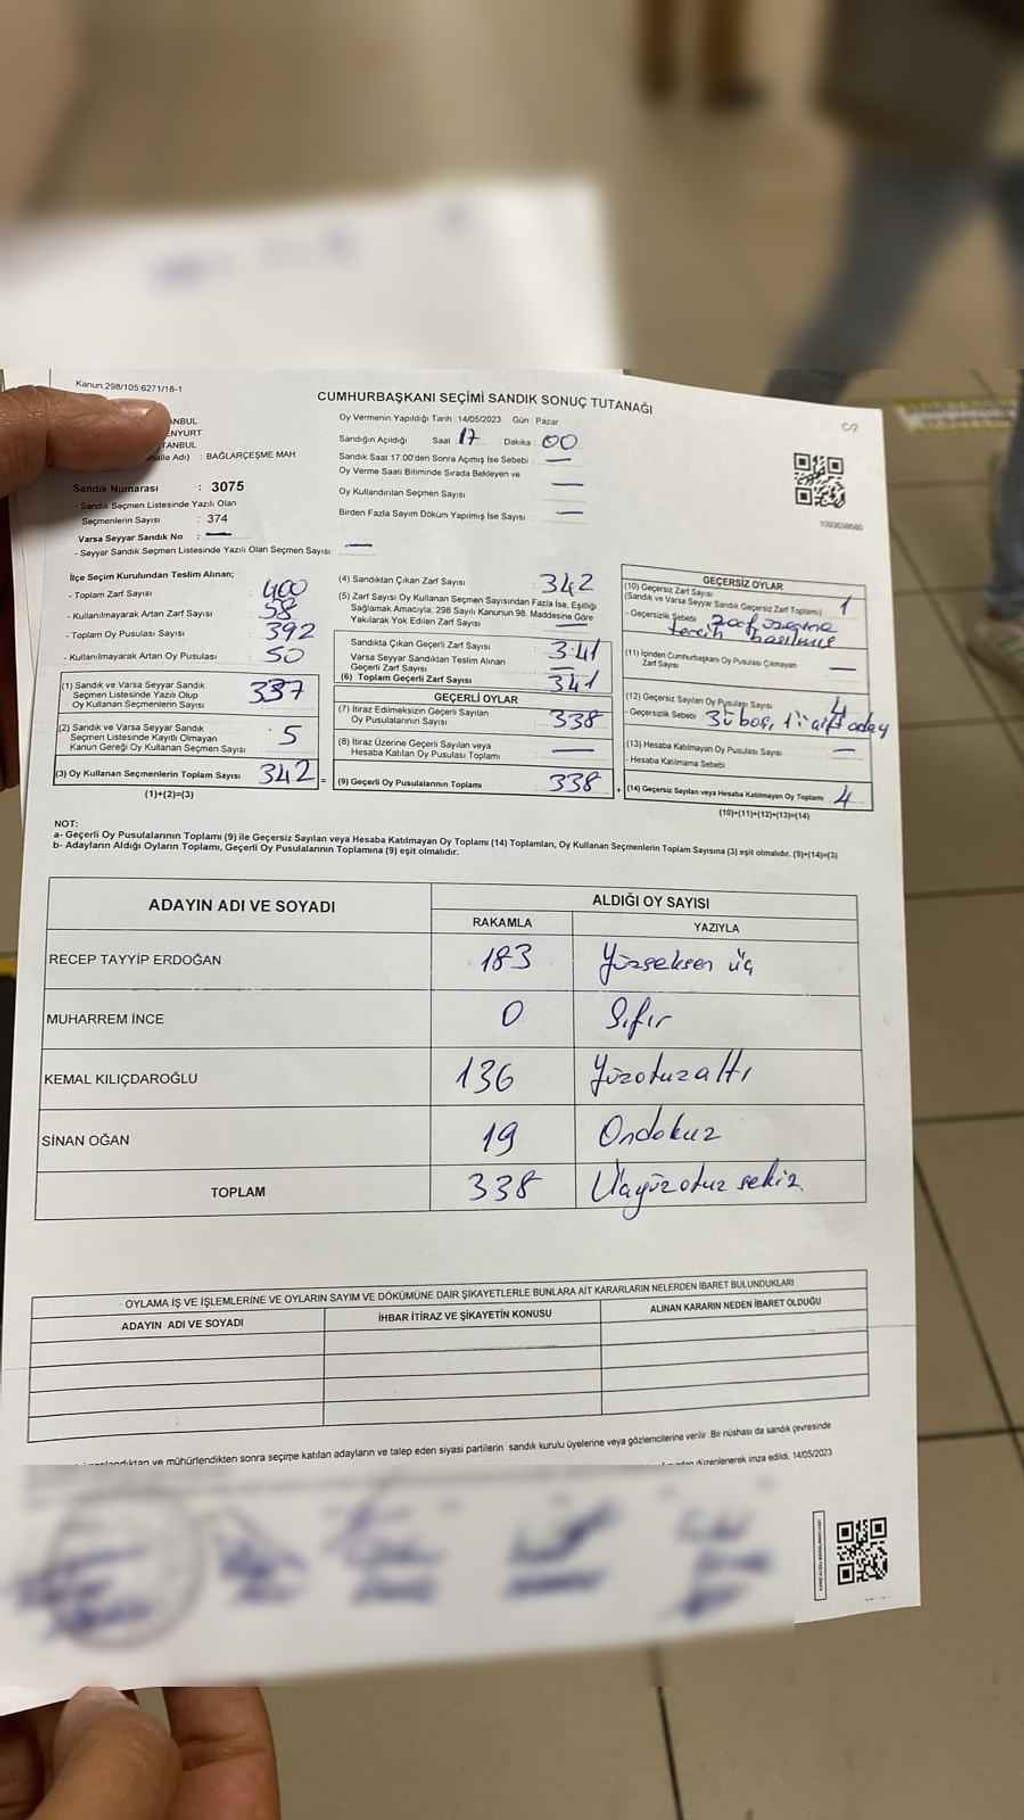 Kanun:298/105:6271/18-1
CUMHURBAŞKANI SEÇİMİ SANDIK SONUÇ TUTANAĞI
NBUL
ENYURT
TANBUL
Adı) : BAĞLARÇEŞME MAH
Sandık Numarası : 3075
- Sandık Seçmen Listesinde Yazılı Olan
Seçmenlerin Sayısı : 374
Varsa Seyyar Sandık No : —
- Seyyar Sandık Seçmen Listesinde Yazılı Olan Seçmen Sayısı: —
Oy Vermenin Yapıldığı Tarih :14/05/2023 Gün : Pazar
Sandığın Açıldığı Saat 17 Dakika : 00
Sandık Saat 17:00'den Sonra Açmış İse Sebebi : —
Oy Verme Saati Bitiminde Sırada Bekleyen ve
Oy Kullandırılan Seçmen Sayısı —
Birden Fazla Sayım Döküm Yapılmış İse Sayısı —
İlçe Seçim Kurulundan Teslim Alınan;
- Toplam Zarf Sayısı 400
- Kullanılmayarak Artan Zarf Sayısı 58
- Toplam Oy Pusulası Sayısı 392
- Kullanılmayarak Artan Oy Pusulası 50
(1) Sandık ve Varsa Seyyar Sandık
Seçmen Listesinde Yazılı Olup
Oy Kullanan Seçmenlerin Sayısı 337
(2) Sandık ve Varsa Seyyar Sandık
Seçmen Listesinde Kayıtlı Olmayan
Kanun Gereği Oy Kullanan Seçmen Sayısı 5
(3) Oy Kullanan Seçmenlerin Toplam Sayısı 342 =
(1)+(2)=(3)
(4) Sandıktan Çıkan Zarf Sayısı 342
(5) Zarf Sayısı Oy Kullanan Seçmen Sayısından Fazla İse, Eşitliği
Sağlamak Amacıyla, 298 Sayılı Kanunun 98. Maddesine Göre
Yakılarak Yok Edilen Zarf Sayısı —
Sandıkta Çıkan Geçerli Zarf Sayısı 341
Varsa Seyyar Sandıktan Teslim Alınan
Geçerli Zarf Sayısı —
(6) Toplam Geçerli Zarf Sayısı 341
GEÇERLİ OYLAR
(7) İtiraz Edilmeksizin Geçerli Sayılan
Oy Pusulalarının Sayısı 338
(8) İtiraz Üzerine Geçerli Sayılan veya
Hesaba Katılan Oy Pusulası Toplamı —
(9) Geçerli Oy Pusulalarının Toplamı 338 +
GEÇERSİZ OYLAR
(10) Geçersiz Zarf Sayısı
(Sandık ve Varsa Seyyar Sandık Geçersiz Zarf Toplamı) 1
- Geçersizlik Sebebi zarf üzerine
tercih basılmış
(11) İçinden Cumhurbaşkanı Oy Pusulası Çıkmayan
Zarf Sayısı —
(12) Geçersiz Sayılan Oy Pusulası Sayısı 4
- Geçersizlik Sebebi 3ü boş, 1'i çift aday
(13) Hesaba Katılmayan Oy Pusulası Sayısı —
- Hesaba Katılmama Sebebi
(14) Geçersiz Sayılan veya Hesaba Katılmayan Oy Toplamı 4
(10)+(11)+(12)+(13)=(14)
NOT:
a- Geçerli Oy Pusulalarının Toplamı (9) ile Geçersiz Sayılan veya Hesaba Katılmayan Oy Toplamı (14) Toplamları, Oy Kullanan Seçmenlerin Toplam Sayısına (3) eşit olmalıdır. (9)+(14)=(3)
b- Adayların Aldığı Oyların Toplamı, Geçerli Oy Pusulalarının Toplamına (9) eşit olmalıdır.
ADAYIN ADI VE SOYADI
ALDIĞI OY SAYISI
RAKAMLA YAZIYLA
RECEP TAYYİP ERDOĞAN 183 Yüzseksen üç
MUHARREM İNCE 0 Sıfır
KEMAL KILIÇDAROĞLU 136 Yüzotuzaltı
SİNAN OĞAN 19 Ondokuz
TOPLAM 338 Üçyüzotuz sekiz
OYLAMA İŞ VE İŞLEMLERİNE VE OYLARIN SAYIM VE DÖKÜMÜNE DAİR ŞİKAYETLERLE BUNLARA AİT KARARLARIN NELERDEN İBARET BULUNDUKLARI
ADAYIN ADI VE SOYADI
İHBAR İTİRAZ VE ŞİKAYETİN KONUSU
ALINAN KARARIN NEDEN İBARET OLDUĞU
ve mühürlendikten sonra seçime katılan adayların ve talep eden siyasi partilerin sandık kurulu üyelerine veya gözlemcilerine verilir. Bir nüshası da sandık çevresinde
düzenlenerek imza edildi. 14/05/2023